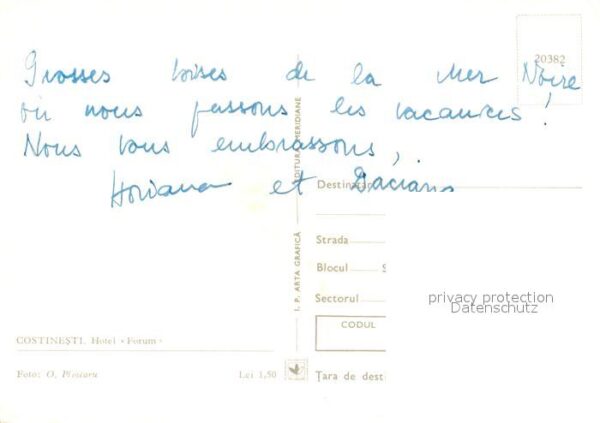 20382
Grosses bises de la Mer Noire
où nous passons les vacances!
Nous vous embrassons,
et
EDITURA MERIDIANE
I. P. ARTA GRAFICĂ
Destinatar
Strada
Blocul S
Sectorul
CODUL
Țara de dest
privacy protection
Datenschutz
COSTINEȘTI. Hotel «Forum»
Foto: O,
Lei 1,50